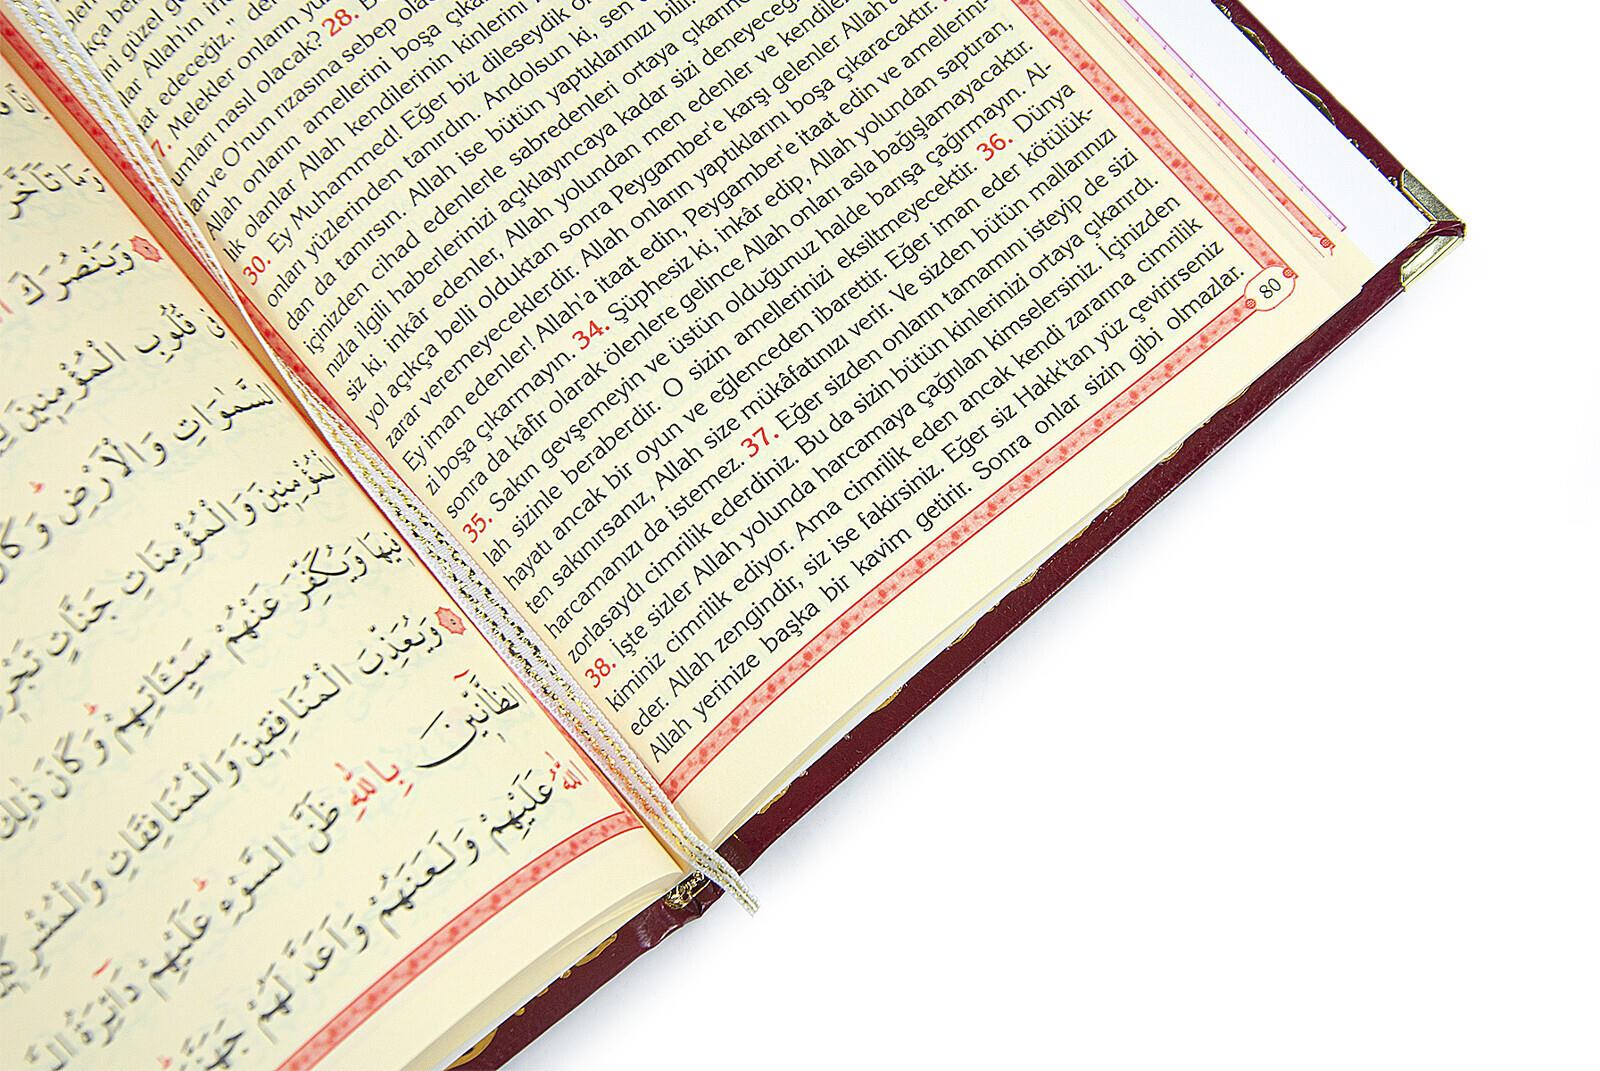 ni güzel
Allah'ın
edeceğiz." 
7. Melekler onların
nasıl olacak? 28.
ve O'nun rızasına sebep
Allah onların amellerini boşa
olanlar Allah kendilerinin kinlerini
30. Ey Muhammed! Eğer biz dileseydik
onları yüzlerinden tanırdın. Andolsun ki, sen
dan da tanırsın. Allah ise bütün yaptıklarınızı bilir.
içinizden cihad edenlerle sabredenleri ortaya
nızla ilgili haberlerinizi açıklayıncaya kadar sizi
siz ki, inkâr edenler, Allah yolundan men edenler ve
yol açıkça belli olduktan sonra Peygamber'e karşı gelenler Allah'a
zarar veremeyeceklerdir. Allah onların yaptıklarını boşa çıkaracaktır.
Ey iman edenler! Allah'a itaat edin, Peygamber'e itaat edin ve amellerini-
zi boşa çıkarmayın. 34. Şüphesiz ki, inkâr edip, Allah yolundan saptıran,
sonra da kâfir olarak ölenlere gelince Allah onları asla bağışlamayacaktır.
35. Sakın gevşemeyin ve üstün olduğunuz halde barışa çağırmayın. Al-
lah sizinle beraberdir. O sizin amellerinizi eksiltmeyecektir. 36. Dünya
hayatı ancak bir oyun ve eğlenceden ibarettir. Eğer iman eder kötülük-
ten sakınırsanız, Allah size mükâfatınızı verir. Ve sizden bütün mallarınızı
harcamanızı da istemez. 37. Eğer sizden onların tamamını isteyip de sizi
zorlasaydı cimrilik ederdiniz. Bu da sizin bütün kinlerinizi ortaya çıkarırdı.
38. İşte sizler Allah yolunda harcamaya çağrılan kimselersiniz. İçinizden
kiminiz cimrilik ediyor. Ama cimrilik eden ancak kendi zararına cimrilik
eder. Allah zengindir, siz ise fakirsiniz. Eğer siz Hakk'tan yüz çevirirseniz
Allah yerinize başka bir kavim getirir. Sonra onlar sizin gibi olmazlar.
80
وَمَا تَأَخَّرَ
وَيَنْصُرَكَ
قُلُوبِ الْمُؤْمِنِينَ
السَّمٰوَاتِ وَالْاَرْضِ
الْمُؤْمِنِينَ وَالْمُؤْمِنَاتِ جَنَّاتٍ
فِيهَا وَيُكَفِّرَ عَنْهُمْ سَيِّـَٔاتِهِمْ وَكَانَ ذٰلِكَ
وَيُعَذِّبَ الْمُنَافِقِينَ وَالْمُنَافِقَاتِ
الظَّٓانِّينَ بِاللّٰهِ ظَنَّ السَّوْءِ عَلَيْهِمْ دَٓائِرَةُ
اللّٰهُ عَلَيْهِمْ وَلَعَنَهُمْ وَاَعَدَّ لَهُمْ